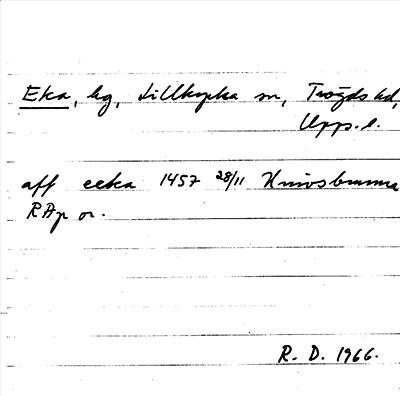 Eka, hg, Lillkyrka sn, Trögds hd,
Upps. l.
aff eeka 1457 28/11 Knivsbrunna
RAp or.
R. D. 1966.